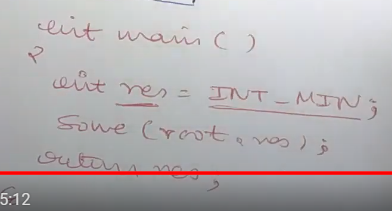 int main ( )
{
int res = INT_MIN;
Solve (root, res);
return res;
5:12